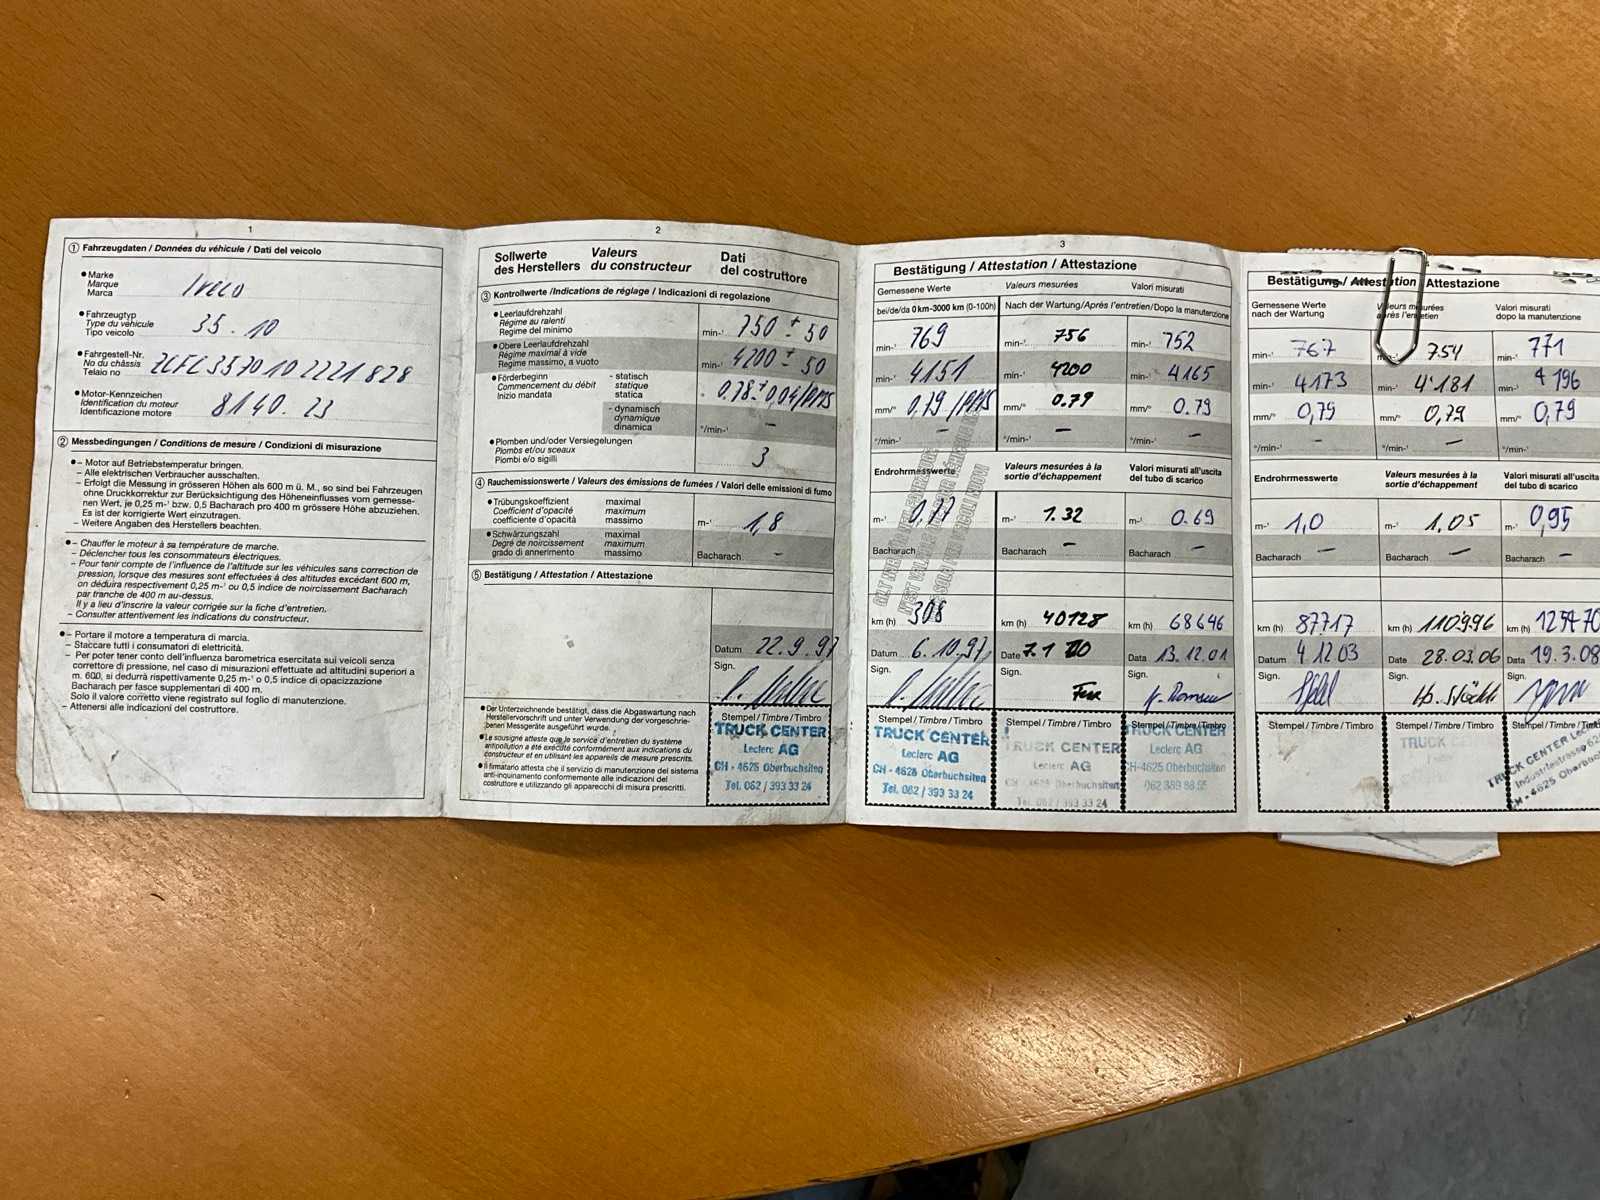 1
① Fahrzeugdaten / Données du véhicule / Dati del veicolo
● Marke
Marque
Marca
Iveco
● Fahrzeugtyp
Type du véhicule
Tipo veicolo
35.10
● Fahrgestell-Nr.
No du châssis
Telaio no
ZCFC3570102221828
● Motor-Kennzeichen
Identification du moteur
Identificazione motore
8140.23
② Messbedingungen / Conditions de mesure / Condizioni di misurazione
● – Motor auf Betriebstemperatur bringen.
– Alle elektrischen Verbraucher ausschalten.
– Erfolgt die Messung in grösseren Höhen als 600 m ü. M., so sind bei Fahrzeugen
ohne Druckkorrektur zur Berücksichtigung des Höheneinflusses vom gemesse-
nen Wert, je 0,25 m-¹ bzw. 0,5 Bacharach pro 400 m grössere Höhe abzuziehen.
Es ist der korrigierte Wert einzutragen.
– Weitere Angaben des Herstellers beachten.
● – Chauffer le moteur à sa température de marche.
– Déclencher tous les consommateurs électriques.
– Pour tenir compte de l'influence de l'altitude sur les véhicules sans correction de
pression, lorsque des mesures sont effectuées à des altitudes excédant 600 m,
on déduira respectivement 0,25 m-¹ ou 0,5 indice de noircissement Bacharach
par tranche de 400 m au-dessus.
Il y a lieu d'inscrire la valeur corrigée sur la fiche d'entretien.
– Consulter attentivement les indications du constructeur.
● – Portare il motore a temperatura di marcia.
– Staccare tutti i consumatori di elettricità.
– Per poter tener conto dell'influenza barometrica esercitata sui veicoli senza
correttore di pressione, nel caso di misurazioni effettuate ad altitudini superiori a
m. 600, si dedurrà rispettivamente 0,25 m-¹ o 0,5 indice di opacizzazione
Bacharach per fasce supplementari di 400 m.
Solo il valore corretto viene registrato sul foglio di manutenzione.
– Attenersi alle indicazioni del costruttore.
2
Sollwerte Valeurs Dati
des Herstellers du constructeur del costruttore
③ Kontrollwerte / Indications de réglage / Indicazioni di regolazione
● Leerlaufdrehzahl
Régime au ralenti
Regime del minimo
min-¹ 750 ± 50
● Obere Leerlaufdrehzahl
Régime maximal à vide
Regime massimo, a vuoto
min-¹ 4200 ± 50
● Förderbeginn - statisch
Commencement du débit statique
Inizio mandata statica
0.78 ± 0,04/PMS
- dynamisch
dynamique
dinamica
°/min-¹ –
● Plomben und/oder Versiegelungen
Plombs et/ou sceaux
Piombi e/o sigilli
3
④ Rauchemissionswerte / Valeurs des émissions de fumées / Valori delle emissioni di fumo
● Trübungskoeffizient maximal
Coefficient d'opacité maximum
coefficiente d'opacità massimo
m-¹ 1,8
● Schwärzungszahl maximal
Degré de noircissement maximum
grado di annerimento massimo
Bacharach –
⑤ Bestätigung / Attestation / Attestazione
Datum 22.9.97
Sign.
● Der Unterzeichnende bestätigt, dass die Abgaswartung nach
Herstellervorschrift und unter Verwendung der vorgeschrie-
benen Messgeräte ausgeführt wurde.
● Le sousigné atteste que le service d'entretien du système
antipollution a été exécuté conformément aux indications du
constructeur et en utilisant les appareils de mesure prescrits.
● Il firmatario attesta che il servizio di manutenzione del sistema
anti-inquinamento conformemente alle indicazioni del
costruttore e utilizzando gli apparecchi di misura prescritti.
Stempel / Timbre / Timbro
TRUCK CENTER
Leclerc AG
CH - 4625 Oberbuchsiten
Tel. 062 / 393 33 24
3
Bestätigung / Attestation / Attestazione
Gemessene Werte Valeurs mesurées Valori misurati
bei/de/da 0 km-3000 km (0-100h) Nach der Wartung/Après l'entretien/Dopo la manutenzione
min-¹ 769 min-¹ 756 min-¹ 752
min-¹ 4151 min-¹ 4200 min-¹ 4165
mm/° 0,79/PMS mm/° 0.79 mm/° 0.79
°/min-¹ – °/min-¹ – °/min-¹ –
Endrohrmesswerte Valeurs mesurées à la sortie d'échappement Valori misurati all'uscita del tubo di scarico
m-¹ 0,77 m-¹ 1.32 m-¹ 0.69
Bacharach Bacharach – Bacharach –
km (h) 308 km (h) 40128 km (h) 68646
Datum 6.10.97 Date 7.1 Data 13.12.01
Sign. Sign. Sign.
Stempel / Timbre / Timbro Stempel / Timbre / Timbro Stempel / Timbre / Timbro
TRUCK CENTER
Leclerc AG
CH - 4625 Oberbuchsiten
Tel. 062 / 393 33 24
TRUCK CENTER
Leclerc AG
CH - 4625 Oberbuchsiten
Tel. 062 / 393 33 24
TRUCK CENTER
Leclerc AG
CH-4625 Oberbuchsiten
Bestätigung / Attestation / Attestazione
Gemessene Werte nach der Wartung Valeurs mesurées après l'entretien Valori misurati dopo la manutenzione
min-¹ 767 min-¹ 754 min-¹ 771
min-¹ 4173 min-¹ 4'181 min-¹ 4196
mm/° 0,79 mm/° 0,79 mm/° 0,79
°/min-¹ – °/min-¹ – °/min-¹ –
Endrohrmesswerte Valeurs mesurées à la sortie d'échappement Valori misurati all'uscita del tubo di scarico
m-¹ 1,0 m-¹ 1.05 m-¹ 0,95
Bacharach – Bacharach – Bacharach –
km (h) 87717 km (h) 110996 km (h) 125470
Datum 4.12.03 Date 28.03.06 Data 19.3.08
Sign. Sign. Sign.
Stempel / Timbre / Timbro Stempel / Timbre / Timbro Stempel / Timbre /
TRUCK
TRUCK CENTER
Industriestrasse
CH - 4625